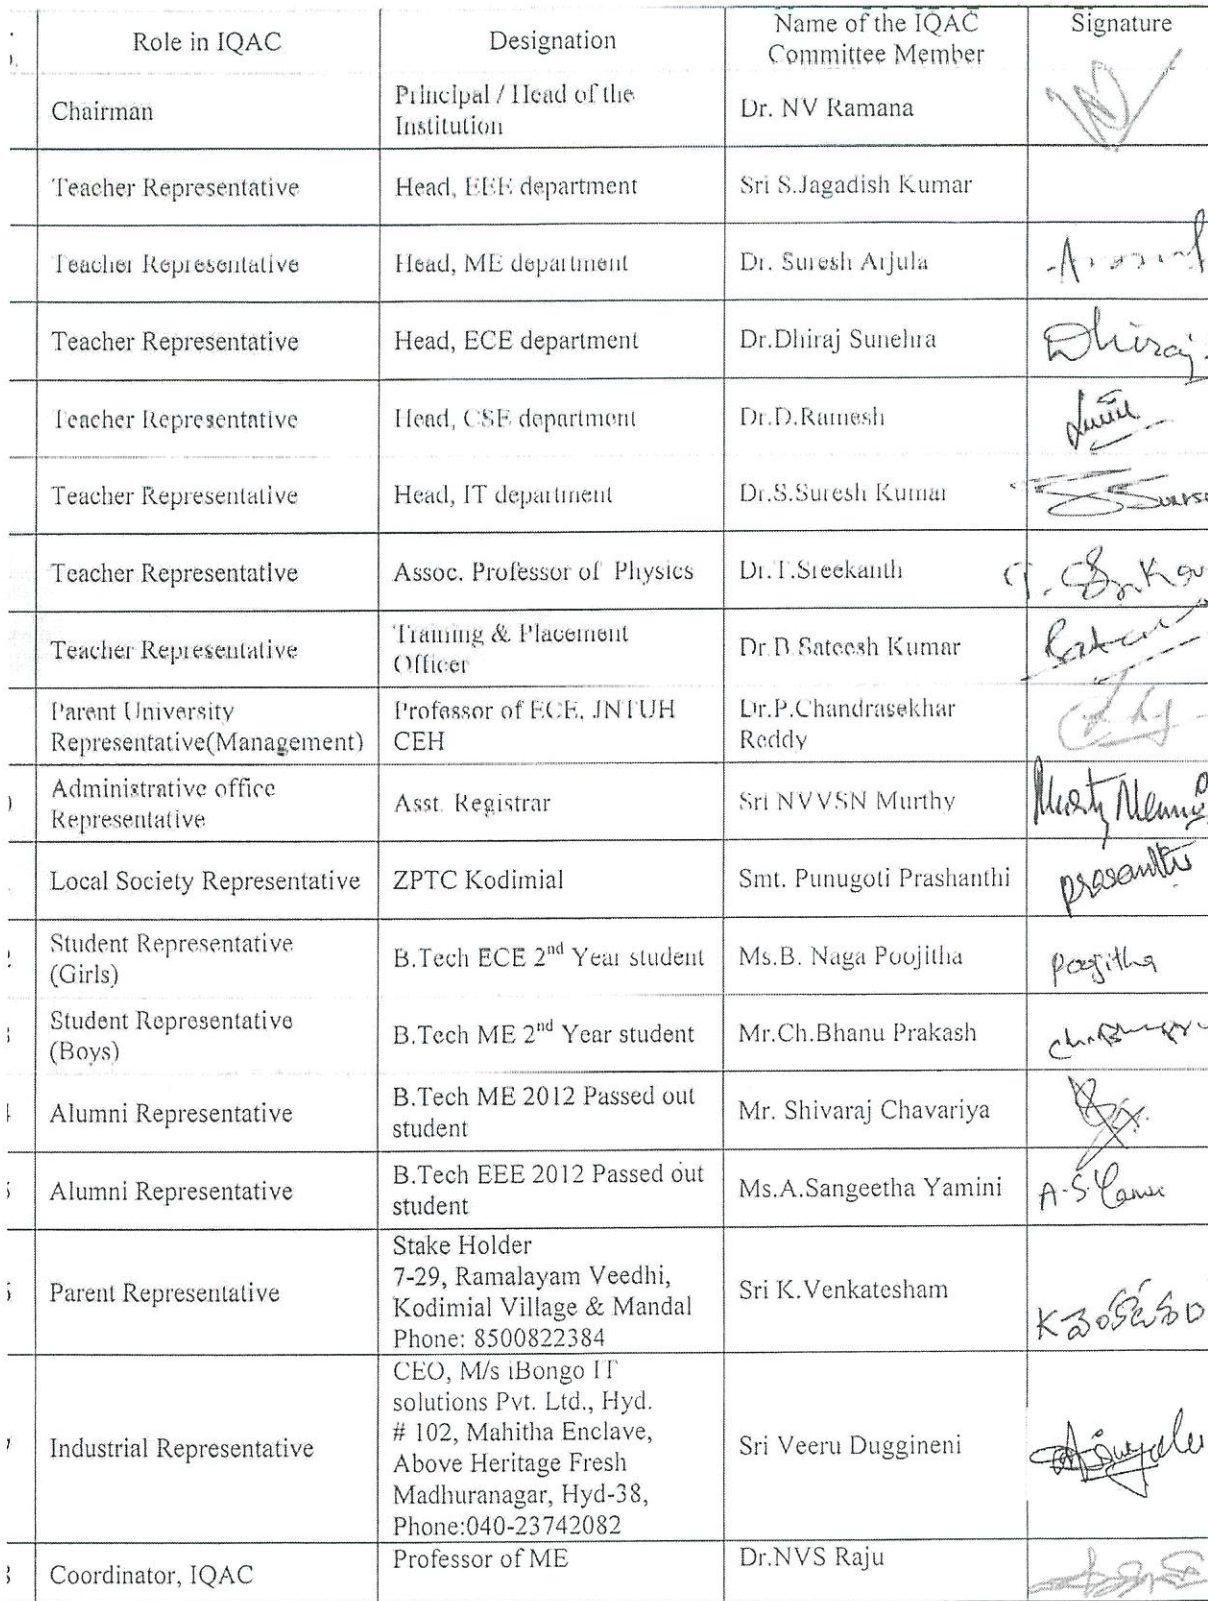 Role in IQAC Designation Name of the IQAC Committee Member Signature
Chairman Principal / Head of the Institution Dr. NV Ramana
Teacher Representative Head, EEE department Sri S.Jagadish Kumar
Teacher Representative Head, ME department Dr. Suresh Arjula
Teacher Representative Head, ECE department Dr.Dhiraj Sunehra Dhiraj
Teacher Representative Head, CSE department Dr.D.Ramesh
Teacher Representative Head, IT department Dr.S.Suresh Kumar
Teacher Representative Assoc. Professor of Physics Dr.T.Sreekanth
Teacher Representative Training & Placement Officer Dr.B.Sateesh Kumar
Parent University Representative(Management) Professor of ECE, JNTUH CEH Dr.P.Chandrasekhar Reddy
Administrative office Representative Asst. Registrar Sri NVVSN Murthy
Local Society Representative ZPTC Kodimial Smt. Punugoti Prashanthi
Student Representative (Girls) B.Tech ECE 2nd Year student Ms.B. Naga Poojitha Poojitha
Student Representative (Boys) B.Tech ME 2nd Year student Mr.Ch.Bhanu Prakash
Alumni Representative B.Tech ME 2012 Passed out student Mr. Shivaraj Chavariya
Alumni Representative B.Tech EEE 2012 Passed out student Ms.A.Sangeetha Yamini
Parent Representative Stake Holder
7-29, Ramalayam Veedhi,
Kodimial Village & Mandal
Phone: 8500822384 Sri K.Venkatesham
Industrial Representative CEO, M/s iBongo IT
solutions Pvt. Ltd., Hyd.
# 102, Mahitha Enclave,
Above Heritage Fresh
Madhuranagar, Hyd-38,
Phone:040-23742082 Sri Veeru Duggineni
Coordinator, IQAC Professor of ME Dr.NVS Raju